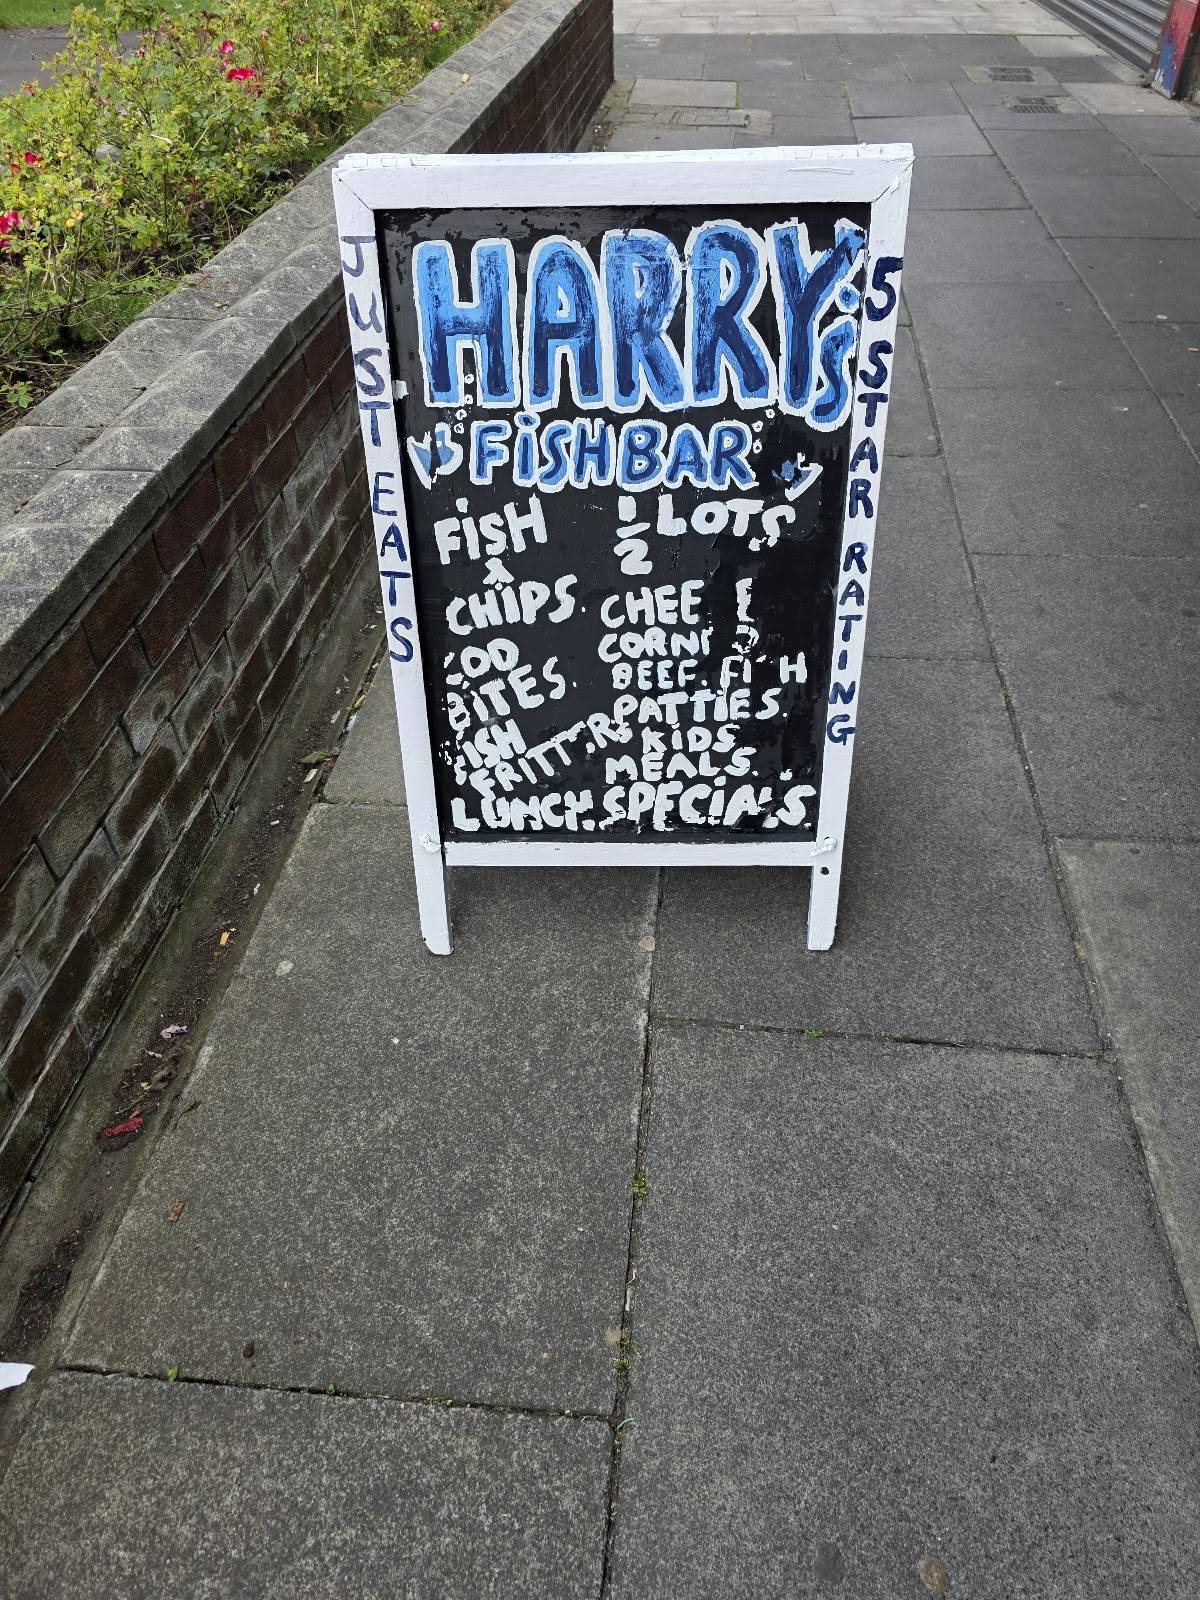 HARRY'S
FISHBAR
JUST EATS
5 STAR RATING
FISH
&
CHIPS.
COD
BITES.
FISH
FRITTERS
1/2 LOTS
CHEE E
CORN
BEEF. FISH
PATTIES.
KIDS
MEALS.
LUNCH. SPECIALS